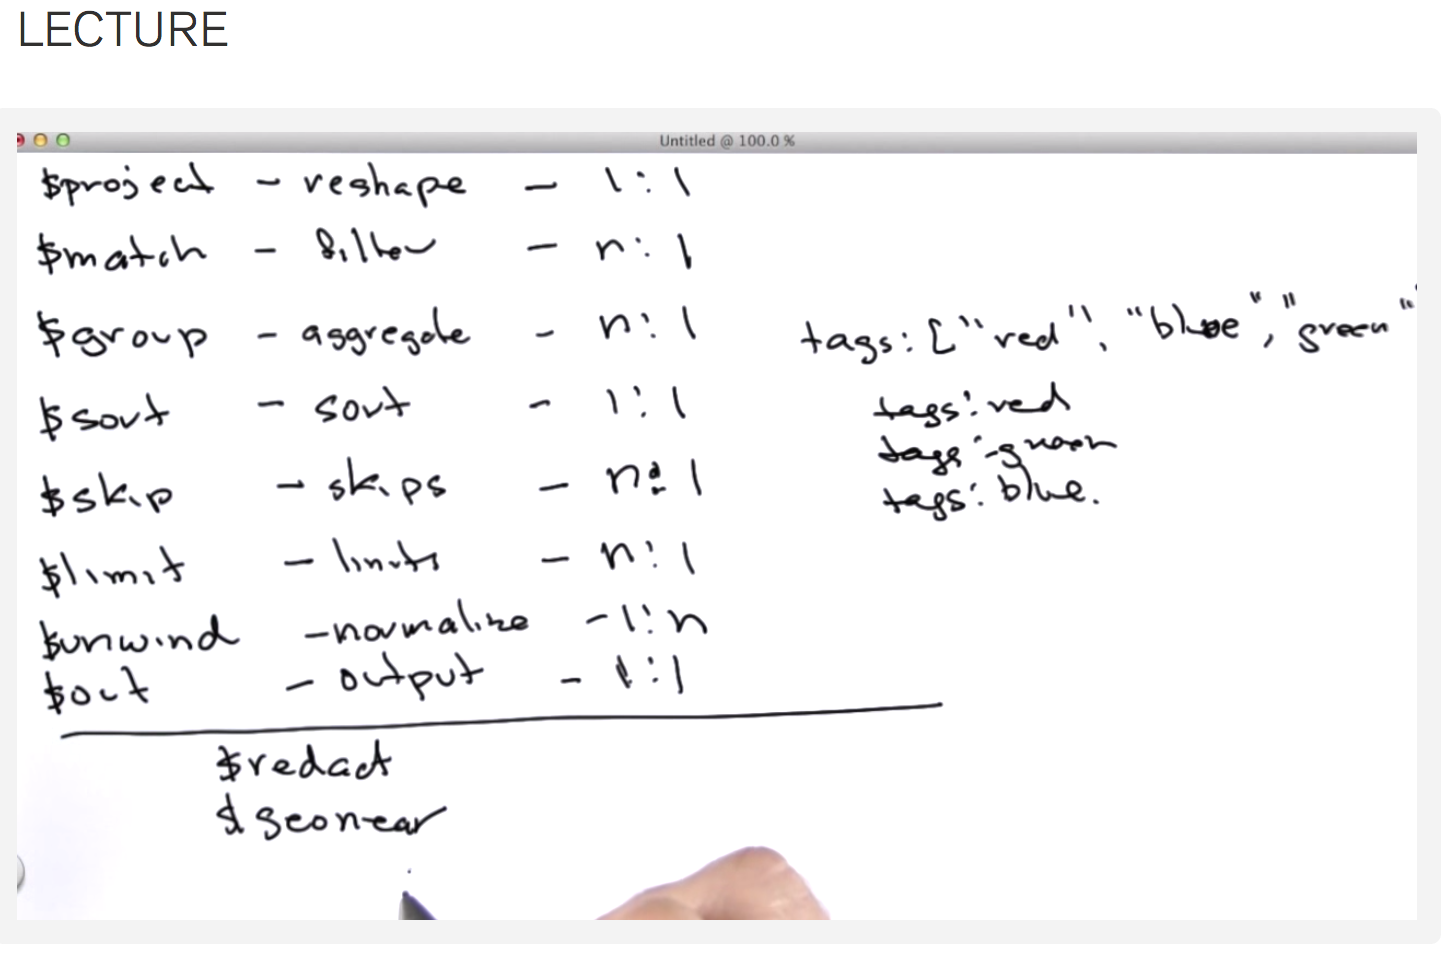 LECTURE
Untitled @ 100.0 %
$project - reshape - 1:1
$match - filter - n:1
$group - aggregate - n:1
$sort - sort - 1:1
$skip - skips - n:1
$limit - limits - n:1
$unwind - normalize - 1:n
$out - output - 1:1
$redact
$geonear
tags: ["red", "blue", "green"
tags: red
tags: green
tags: blue.